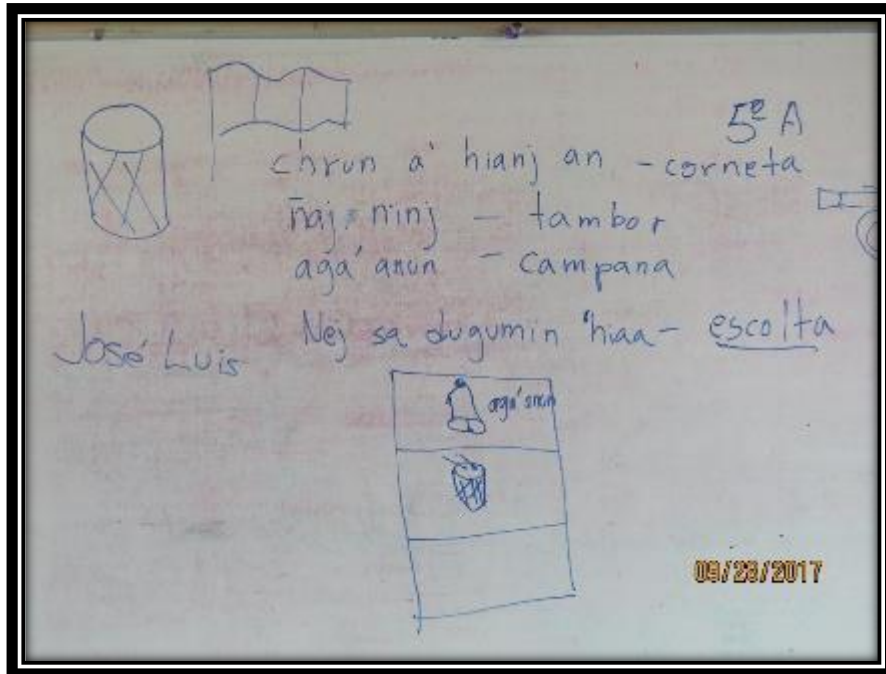 5º A
chrun a' hianj an - corneta
ñaj ninj - tambor
aga' anun - campana
Nej sa dugumin 'hiaa - escolta
José Luis
aga' anun
09/28/2017